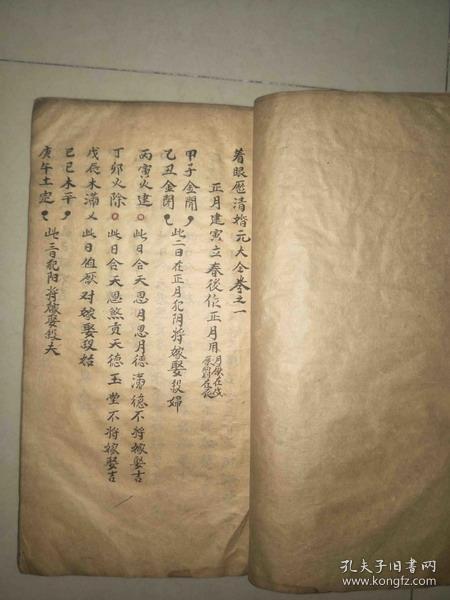 着眼历清婚元大全卷之一
正月建寅立春後作正月用 月厌在戌 厌對在辰
甲子金開
乙丑金閉 此二日在正月犯阴将嫁娶殺婦
丙寅火建 此日合天恩月恩月德满德不将嫁娶吉
丁卯火除 此日合天恩煞贡天德玉堂不将嫁娶吉
戊辰木滿 此日值厌对嫁娶殺姑
己巳木平
庚午土定 此三日犯阳将嫁娶殺夫
孔夫子旧书网
www.kongfz.com